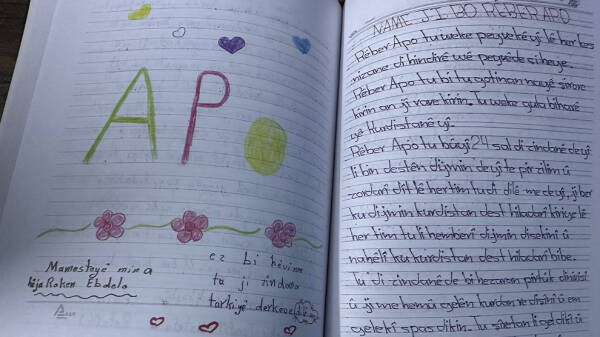 APO
Mamosteyê min a
hêja Roken Ebdela
ez bi hêvi me
tu ji zindana
tarki yê derkeve
NAME JI BO RÊBER APO
Rêber Apo tu weke peyvekê yî lê her kes
nizane di hindirê wê peyvê de çi heye.
Rêber Apo tu bi tu gotinan nayê şirove
kirin an jî rave kirin. Tu weke gula biharê
yê Kurdistanê yî.
Rêber Apo tu bûyî 24 sal di zindanê de yî
li bin destên dijmin de yî te pir zilim û
zordarî dît lê her tim tu di dilê me de yî, ji ber
ku dijmin kurdistan dest hiladarî kiriye lê
her tim tu li hemberî dijmin disekinî û
nahêlî ku kurdistan dest hiladarî bibe.
Tu di zindanê de bi hezaran pirtûk dinivisî
û ji me hemû gelên kurdan re dişînî û em
gelekî spas dikin. Tu gel dikî û